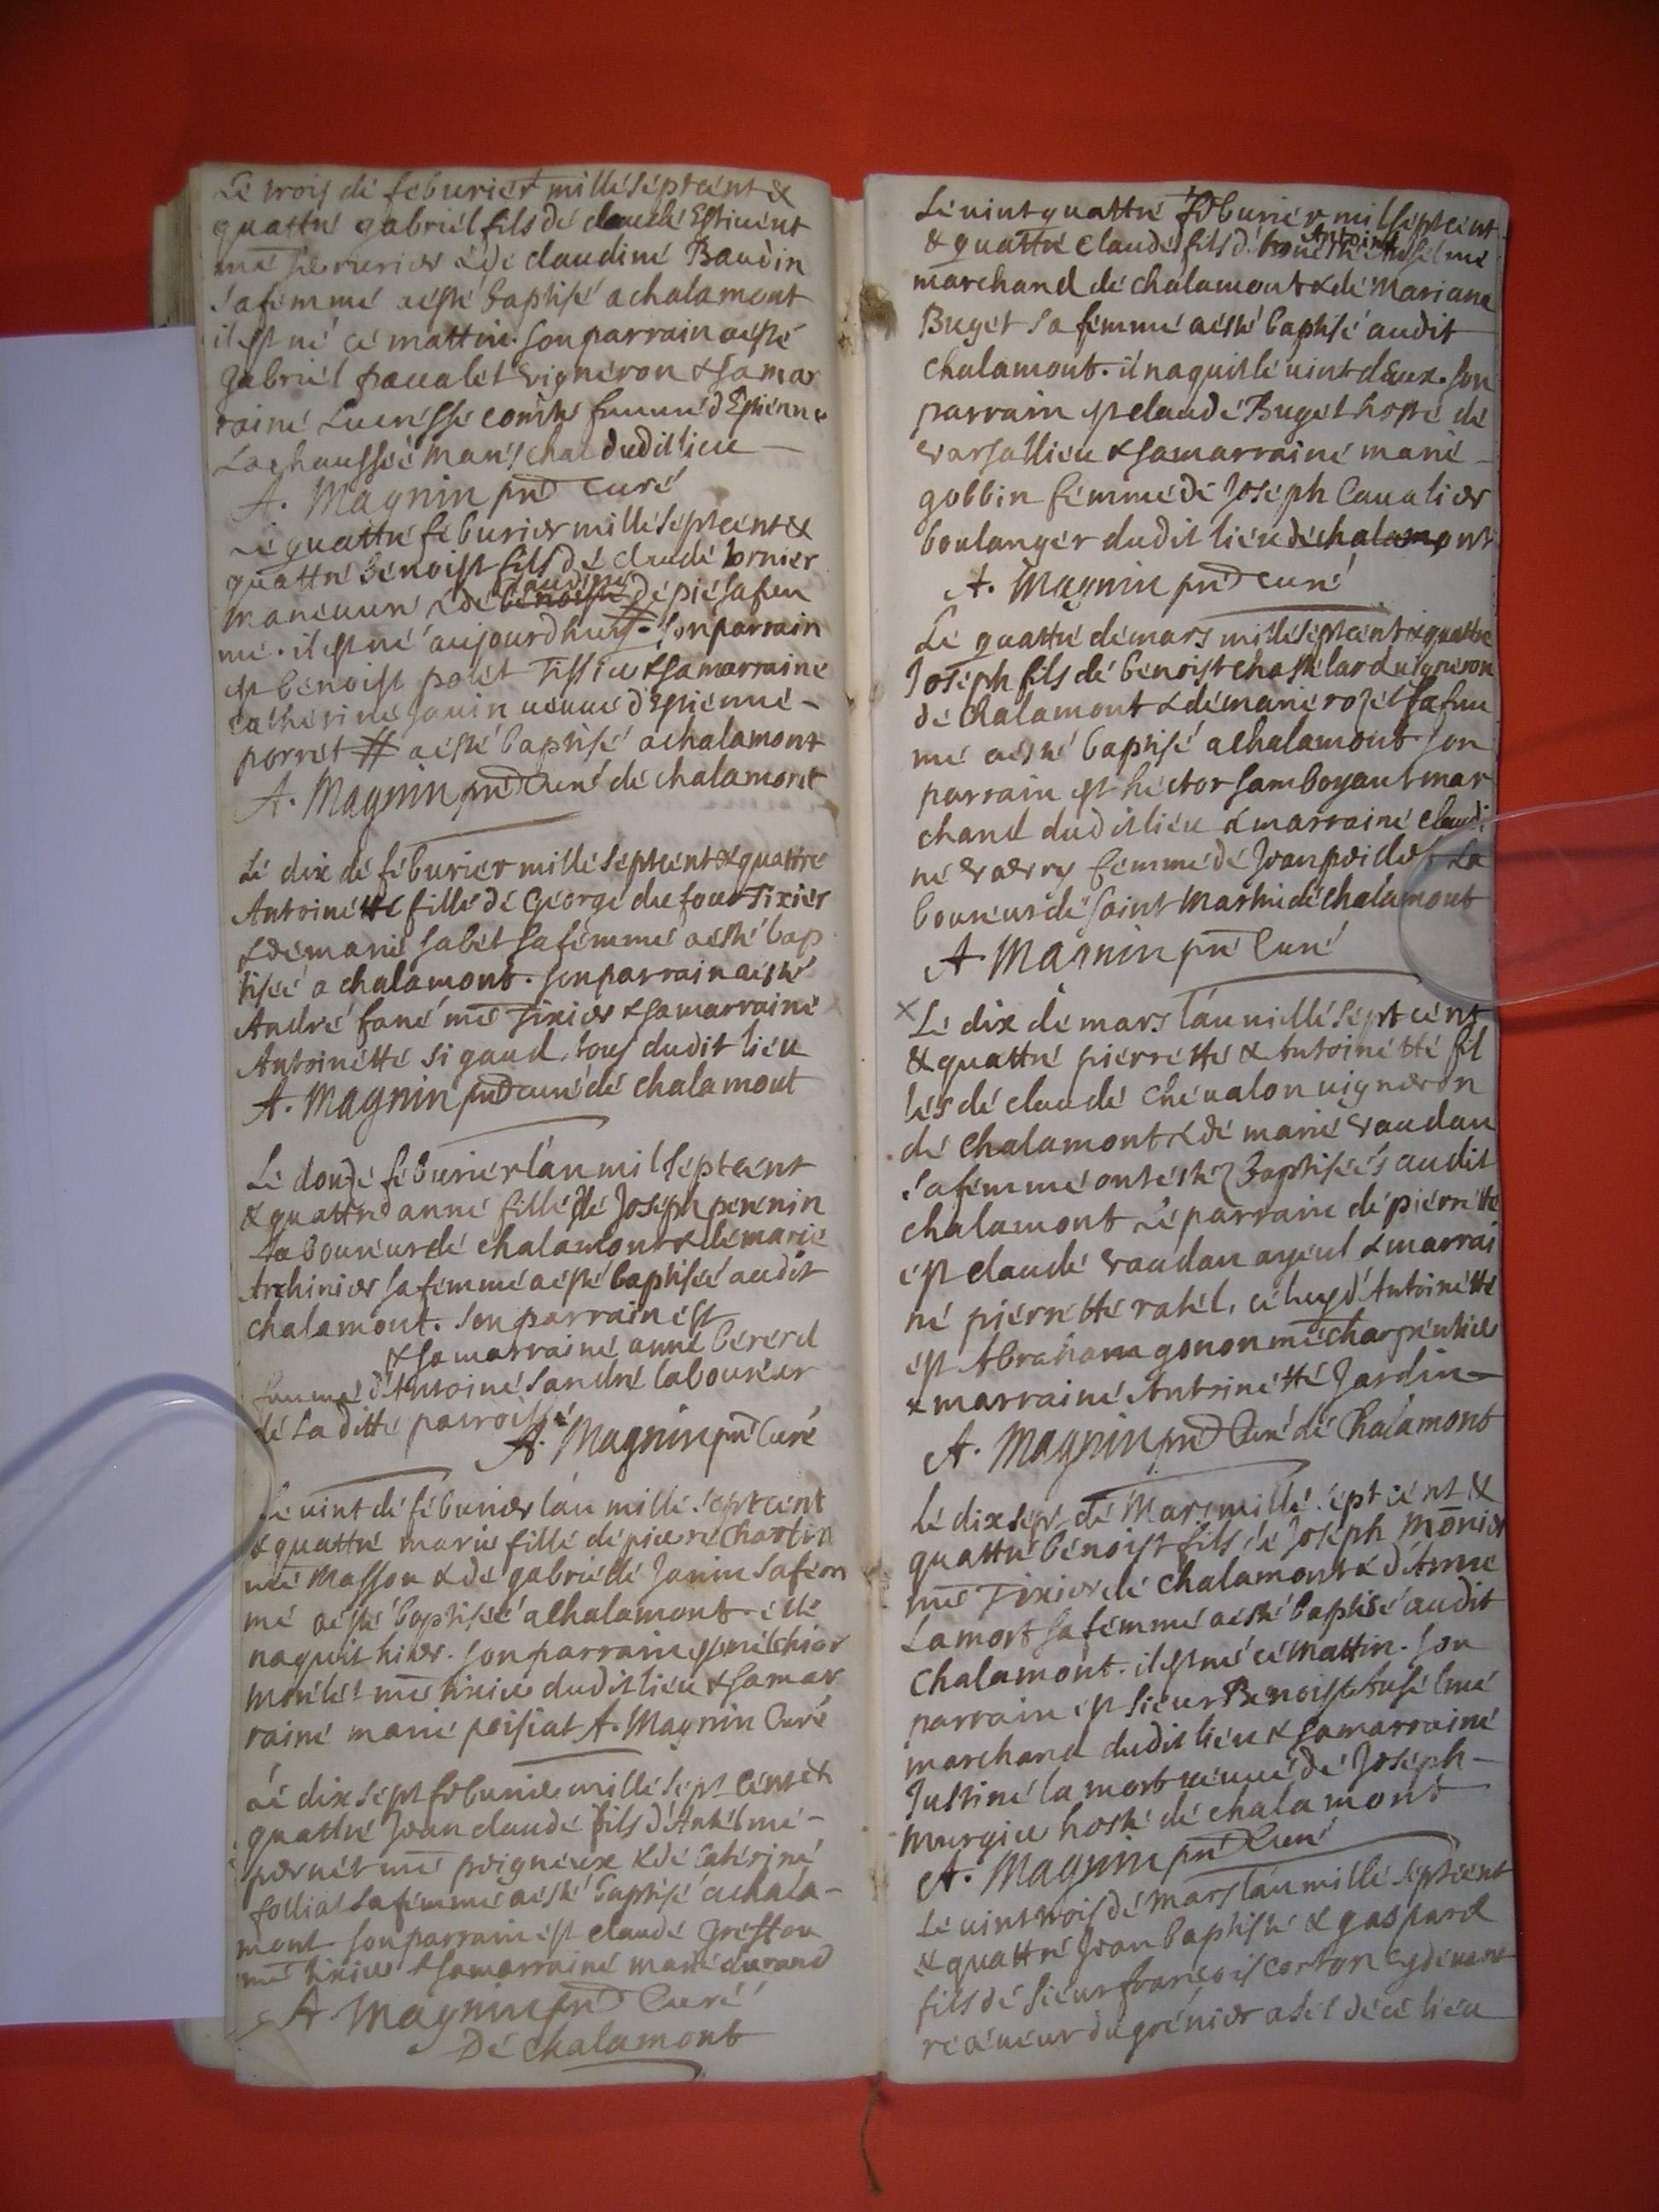 Lé trois dé féburiér millé séptcént &
quattré gabriél fils dé claudé Estiuént
me sérrurier & dé claudiné Baudin
sa fémmé aésté baptisé a chalamont
il est né cé mattin. son parrain aésté
gabriél paualét vignéron & sa mar
rainé Lucréssé comté fémmé d'Estiénné
Lachausséé maréschal dudit lieu
A. Magnin prê curé
Lé quattré féburier millé séptcént &
quattré bénoist fils dé claudé tornier
manéuuré & dé claudiné dépié sa fém
mé. il est né aujourdhuy # son parrain
est bénoist polét Tissiu & sa marrainé
cathériné Janin uéuué d'Estiénné
porrét # aésté baptisé a chalamont
A. Magnin prê curé dé chalamont
Lé dix dé féburiér millé séptcént & quattré
Antoinétté fillé dé George du four Tixiér
& dé marié sabét sa fémmé aésté bap
tiséé a chalamont. son parrain aésté
André fané me Tixier & sa marrainé
Antoinétté sigaud tous dudit liéu
A. Magnin prê curé dé chalamont
Lé douzé féburiér l'an mil séptcént
& quattré anné fillé dé Joséph pérénin
Labouréur dé chalamont & dé marié
Archinier sa fémmé aésté baptiséé audit
chalamont. son parrain ést
& sa marrainé anné bérérd
fémmé d'Antoiné sandré labouréur
dé la ditté parroissé
A. Magnin prê curé
Lé uint dé féburier l'an millé séptcént
& quattré marié fillé dé piérré Charlin
me Masson & dé gabriéllé Janin sa fém
mé aésté baptiséé a chalamont éllé
naquit hier. son parrain est mélchior
morélét me tixier dudit liéu & sa mar
rainé marié poisiat A. Magnin curé
Lé dix sépt féburier millé sépt cént &
quattré Jean claudé fils d'Anthélmé
pernét me peigneux & dé catériné
folliat sa fémmé aésté baptisé a chala-
mont son parrain ést claudé gréffou
me tixier & sa marrainé marié durand
A Magnin prê curé
Dé chalamont
Lé uint quattré féburiér mil séptcént
& quattré claudé fils d'Antoiné Ansélmé
marchand dé chalamont & dé Mariané
Bugét sa fémmé aésté baptisé audit
chalamont. il naquit lé uint déux. son
parrain est claudé Bugét hosté dé
varsallieu & sa marrainé marié
gobbin fémmé dé Joséph Caualier
boulangér dudit liéu dé chalamont
A. Magnin prê curé
Lé quattré dé mars millé séptcént & quattré
Joséph fils dé bénoist chastélard uignéron
dé chalamont & dé marié rozét sa fém
mé aésté baptisé a chalamont son
parrain est héctor samboyaut mar
chand dudit liéu & marrainé claudi
né verry fémmé dé Jean peillet La
bouréur dé saint Martin dé chalamont
A Magnin prê curé
× Lé dix dé mars l'an millé sépt cént
& quattré piérrétté & Antoinétté fil
lés dé claudé chéualon uigneron
dé chalamont & dé marié vaudan
sa fémmé ont ésté baptiséés audit
chalamont Lé parrain dé piérrétté
ést claudé vaudan ayeul & marrai
né piérrétté ratél. céluy d'Antoinétté
ést Abraham gonon me charpéntier
& marrainé Antoinétté Jardin
A. Magnin prê curé dé Chalamont
Lé dix sépt dé Mars millé sépt cént &
quattré bénoist fils dé Joséph monier
me Tixier dé chalamont & d'Anné
Lamort sa fémmé aésté baptisé audit
chalamont. il est né cé mattin. son
parrain est siéur Bénoist Ansélmé
marchand dudit liéu & sa marrainé
Justiné lamort uéuué dé Joséph
murgier hosté dé chalamont
A. Magnin prê curé
Lé uint trois dé mars l'an millé séptcént
& quattré Jean baptisté & gaspard
fils dé siéur françois corton cy déuant
recéuéur du grénier a sél dé cé liéu